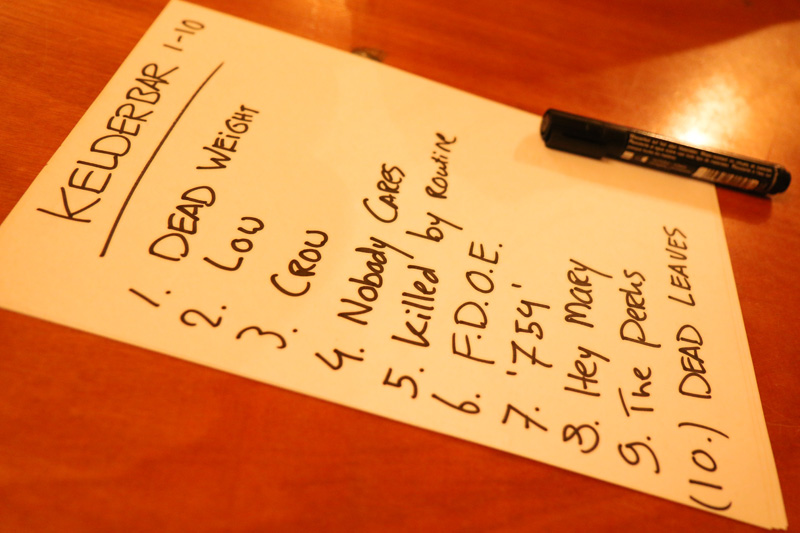 KELDERBAR 1-10
1. DEAD WEIGHT
2. LOW
3. CROW
4. Nobody CARES
5. Killed by Routine
6. F.D.O.E.
7. '754'
8. Hey MARY
9. The Perks
(10.) DEAD LEAVES